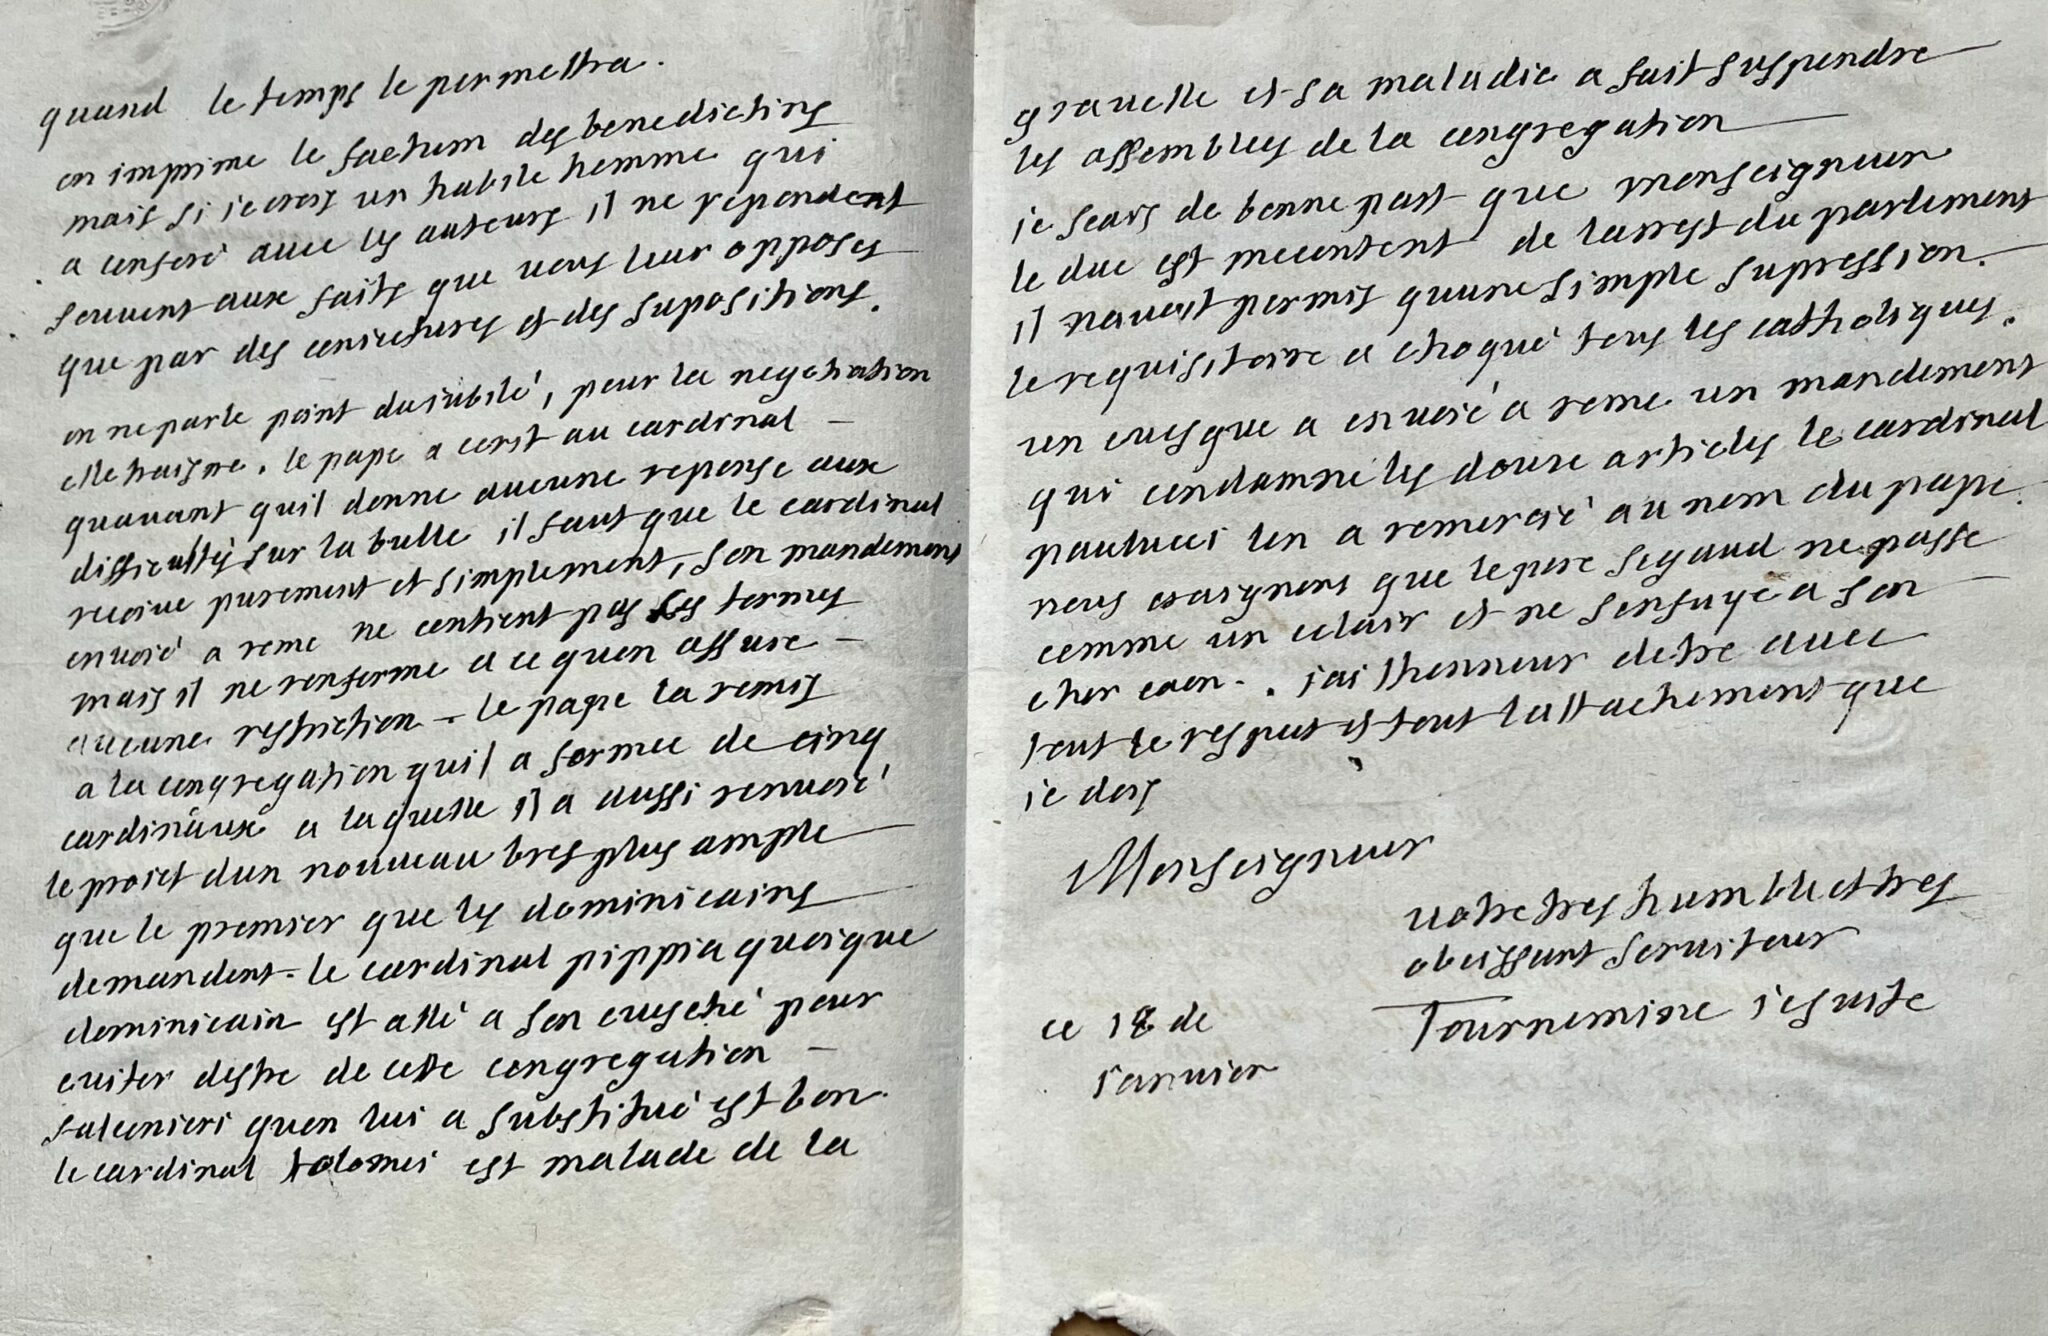 quand le temps le permettra.
on imprime le factum des benedictins
mais si ie crois un habile homme qui
a conferé avec les auteurs il ne repondent
souvent aux faits que vous leur opposes
que par des coniectures et des supositions.
on ne parle point du iubilé, pour la negotiation
elle traisne. le pape a ecrit au cardinal
quavant quil donne aucune reponse aux
difficultés sur la bulle il faut que le cardinal
recoive purement et simplement, son mandement
envoié a rome ne contient pas ces termes
mais il ne renferme a ce quon assure
aucune restriction - le pape la remis
a la congregation quil a formee de cinq
cardinaux a laquelle il a aussi renvoié
le proiet dun nouveau bref plus ample
que le premier que les dominicains
demandent - le cardinal pippia quoique
dominicain est allé a son evesché pour
eviter destre de cette congregation
falconieri quon lui a substitué est bon.
le cardinal tolomei est malade de la
gravelle et sa maladie a fait suspendre
les assemblees de la congregation
ie scais de bonne part que monseigneur
le duc est mecontent de larrest du parlement
il navoit permis quune simple supression.
le requisitoire a choqué tous les catholiques.
un evesque a envoié a rome un mandement
qui condamne les douze articles le cardinal
paulucci len a remercié au nom du pape.
nous craignons que le pere segaud ne passe
comme un eclair et ne senfuye a son
cher caen. iai lhonneur detre avec
tout le respect et tout lattachement que
ie dois
Monseigneur
votre tres humble et tres
obeissant serviteur
Tournemine iesuite
ce 18 de
ianvier